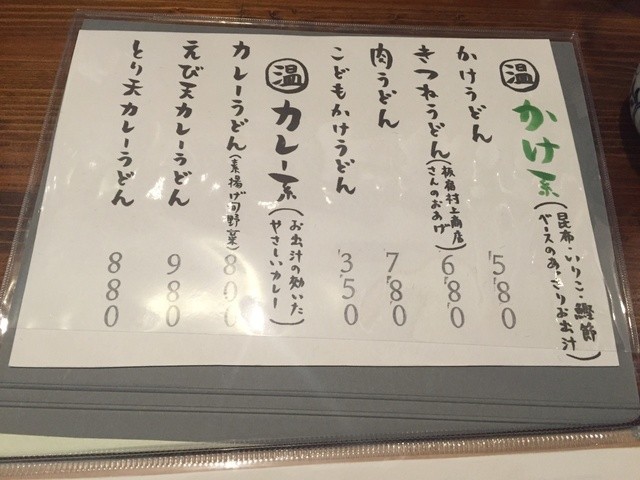 温 かけ系(昆布・いりこ・鰹節
ベースのあっさりお出汁)
かけうどん 580
きつねうどん(板宿村上商店
さんのおあげ) 680
肉うどん 780
こどもかけうどん 350
温 カレー系(お出汁の効いた
やさしいカレー)
カレーうどん(素揚げ旬野菜) 800
えび天カレーうどん 980
とり天カレーうどん 880